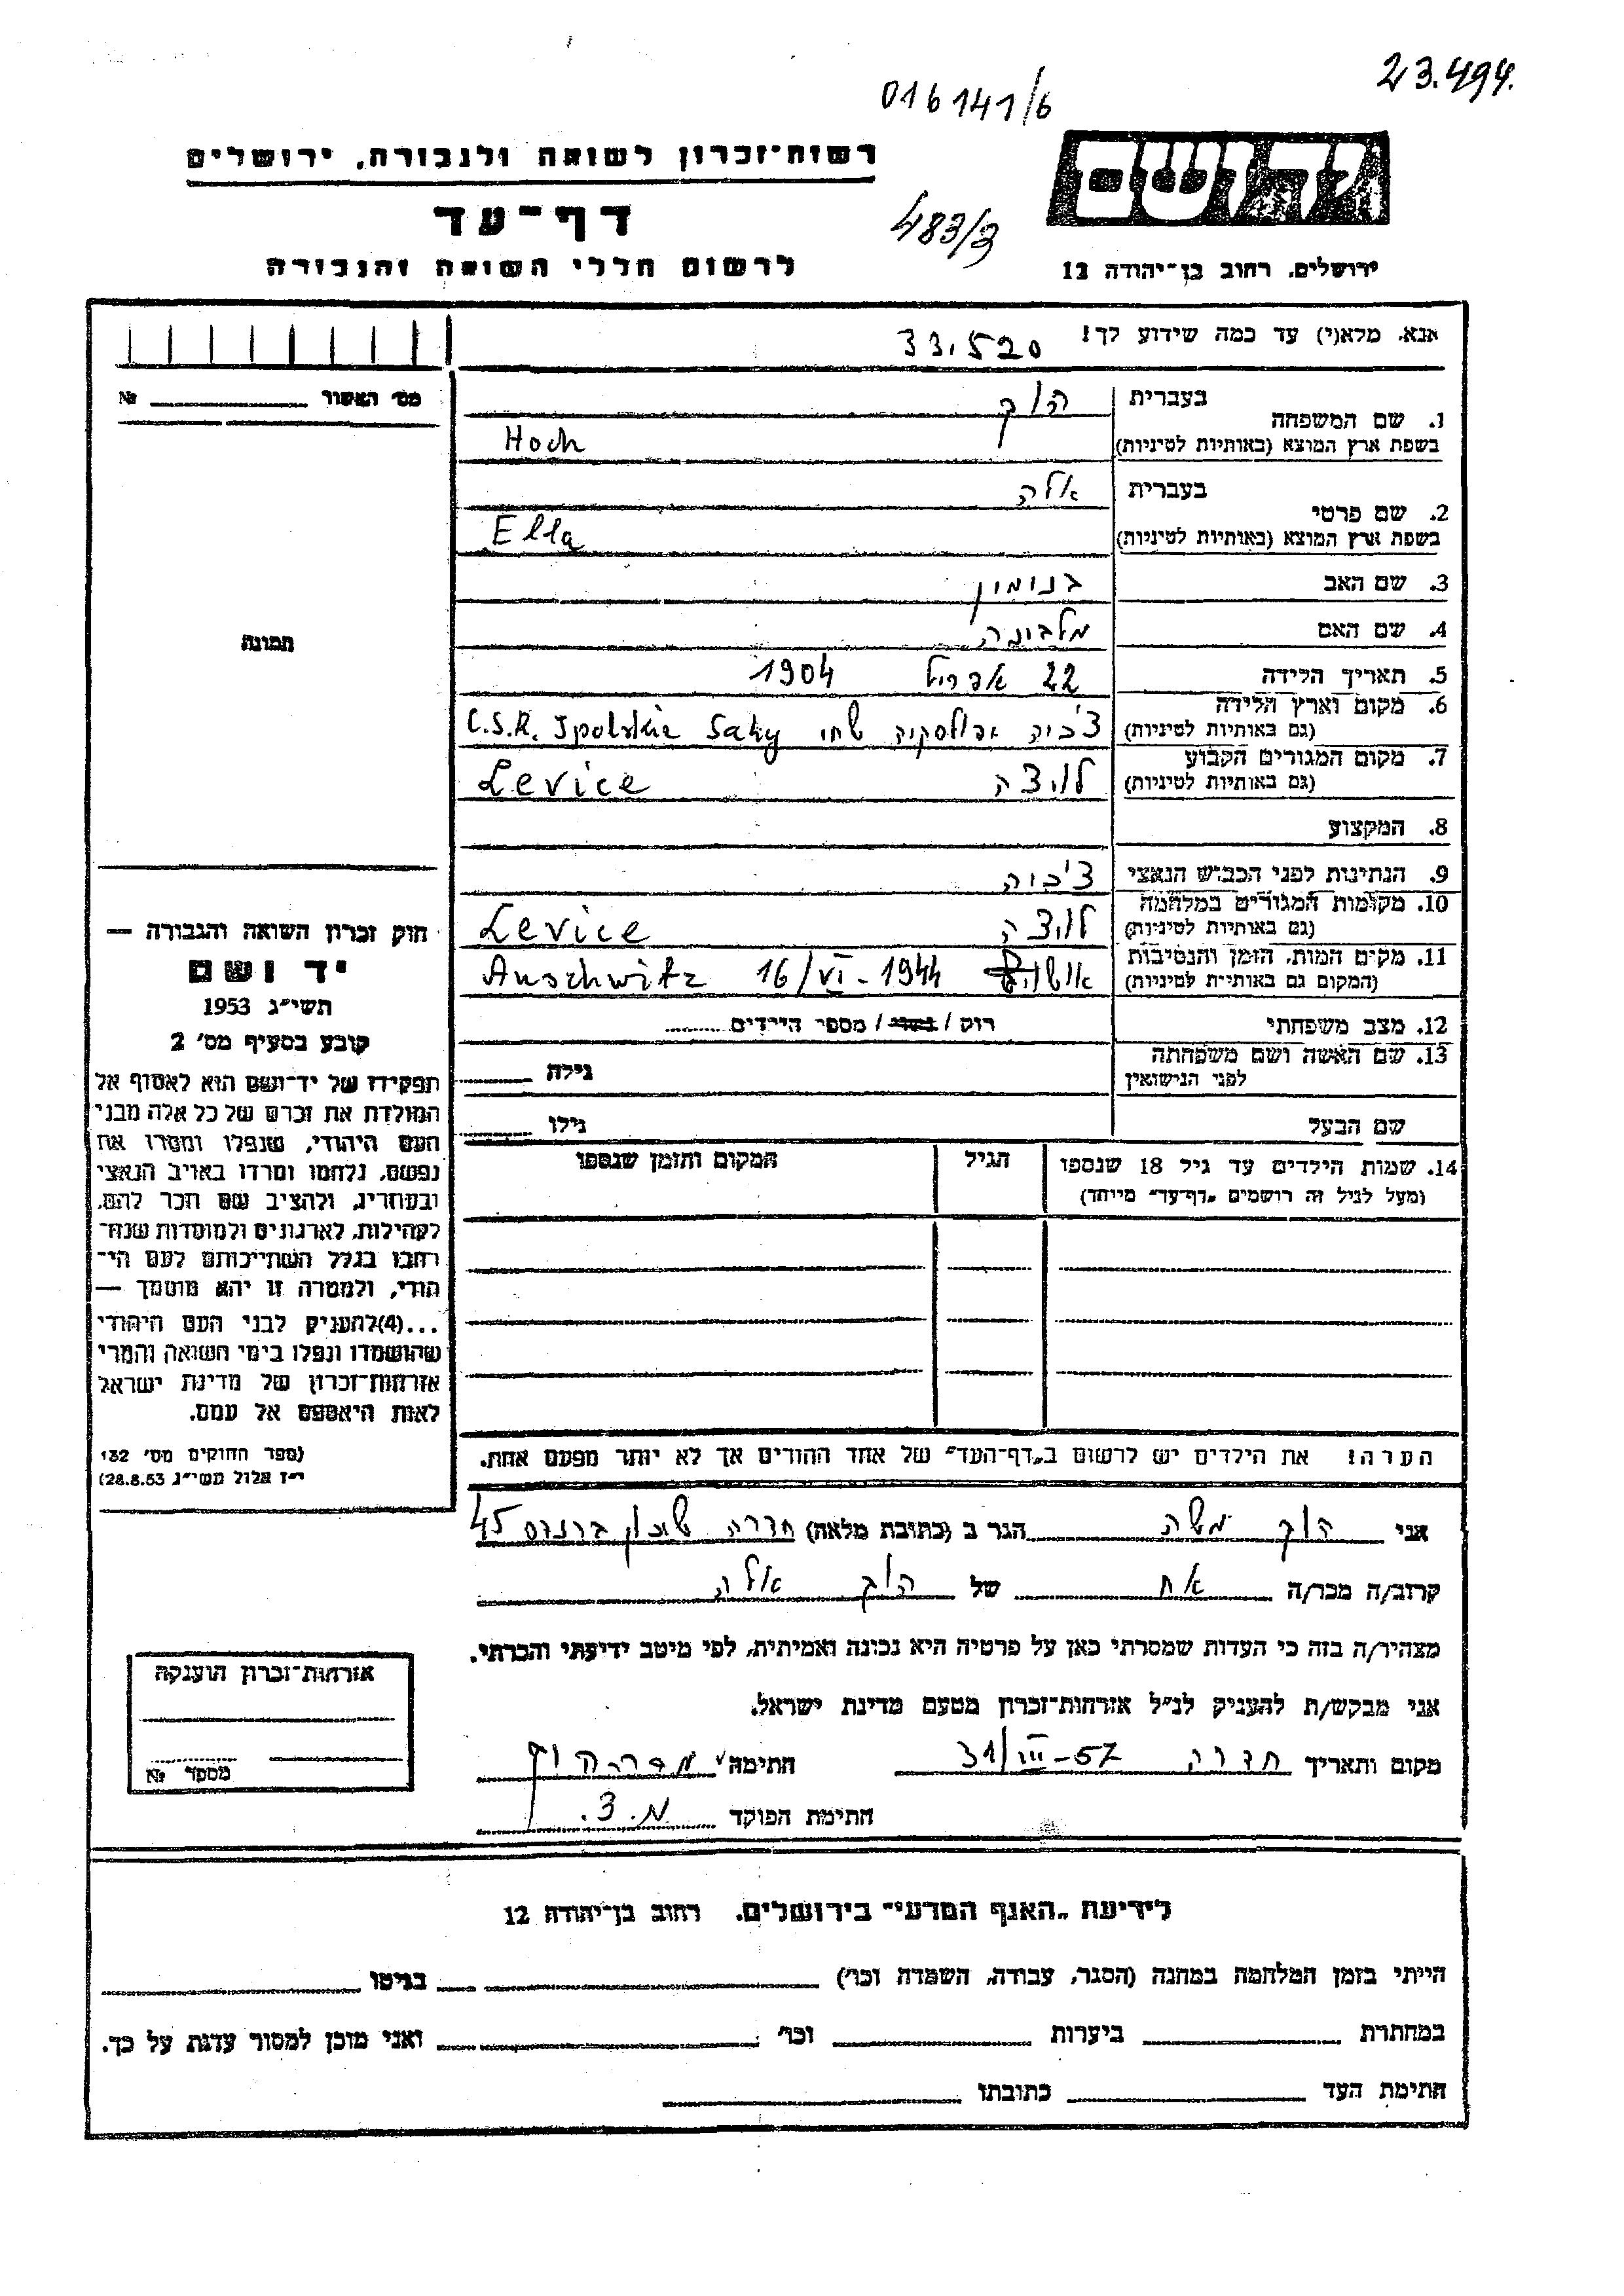 23.494.
016141/6
רשות־זכרון לשואה ולגבורה, ירושלים
דף־עד
483/3
לרשום חללי השואה והגבורה
ירושלים, רחוב בן־יהודה 12
אנא, מלא(י) עד כמה שידוע לך!
33.520
מס׳ האשור № 
1. שם המשפחה בעברית הוך
בשפת ארץ המוצא (באותיות לטיניות) Hoch
2. שם פרטי בעברית אלה
בשפת ארץ המוצא (באותיות לטיניות) Ella
3. שם האב בנימין
4. שם האם מלבינה
תמונה
5. תאריך הלידה 22 אפריל 1904
6. מקום וארץ הלידה
(גם באותיות לטיניות) צ'כיה שחי C.S.R. Ipolskie Sahy
7. מקום המגורים הקבוע
(גם באותיות לטיניות) לויצה Levice
8. המקצוע
9. הנתינות לפני הכבוש הנאצי צ'כיה
10. מקומות המגורים במלחמה
(גם באותיות לטיניות) לויצה Levice
11. מקום המות, הזמן והנסיבות
(המקום גם באותיות לטיניות) Auschwitz 16/VI-1944
12. מצב משפחתי רוק / נשוי / מספר הילדים
13. שם האשה ושם משפחתה
לפני הנישואין גילה
שם הבעל גילו
14. שמות הילדים עד גיל 18 שנספו הגיל המקום והזמן שנספו
(מעל לגיל זה רושמים „דף־עד״ מיוחד)
חוק זכרון השואה והגבורה —
יד ושם
תשי״ג 1953
קובע בסעיף מס׳ 2
תפקידו של יד־ושם הוא לאסוף אל
המולדת את זכרם של כל אלה מבני
העם היהודי, שנפלו ומסרו את
נפשם, נלחמו ומרדו באויב הנאצי
ובעוזריו, ולהציב שם וזכר להם,
לקהילות, לארגונים ולמוסדות שנח־
רבו בגלל השתייכותם לעם הי־
הודי, ולמטרה זו יהא מוסמך —
...(4)להעניק לבני העם היהודי
שהושמדו ונפלו בימי השואה והמרי
אזרחות־זכרון של מדינת ישראל
לאות היאספם אל עמם.
(ספר החוקים מס׳ 132
י״ז אלול תשי״ג 28.8.53)
הערה! את הילדים יש לרשום ב„דף־העד״ של אחד ההורים אך לא יותר מפעם אחת.
אני הוך משה הגר ב (כתובת מלאה) חדרה שיכון ברנדס 45
קרוב/ה מכר/ה אח של הוך אלה
מצהיר/ה בזה כי העדות שמסרתי כאן על פרטיה היא נכונה ואמיתית, לפי מיטב ידיעתי והכרתי.
אני מבקש/ת להעניק לנ״ל אזרחות־זכרון מטעם מדינת ישראל.
מקום ותאריך חדרה 31/III-57 חתימה
חתימת הפוקד מ.צ.
אזרחות־זכרון הוענקה
מספר №
לידיעת „האגף המדעי״ בירושלים. רחוב בן־יהודה 12
הייתי בזמן המלחמה במחנה (הסגר, עבודה, השמדה וכר׳) בגיטו
במחתרת ביערות וכר׳ ואני מוכן למסור עדות על כך.
חתימת העד כתובתו